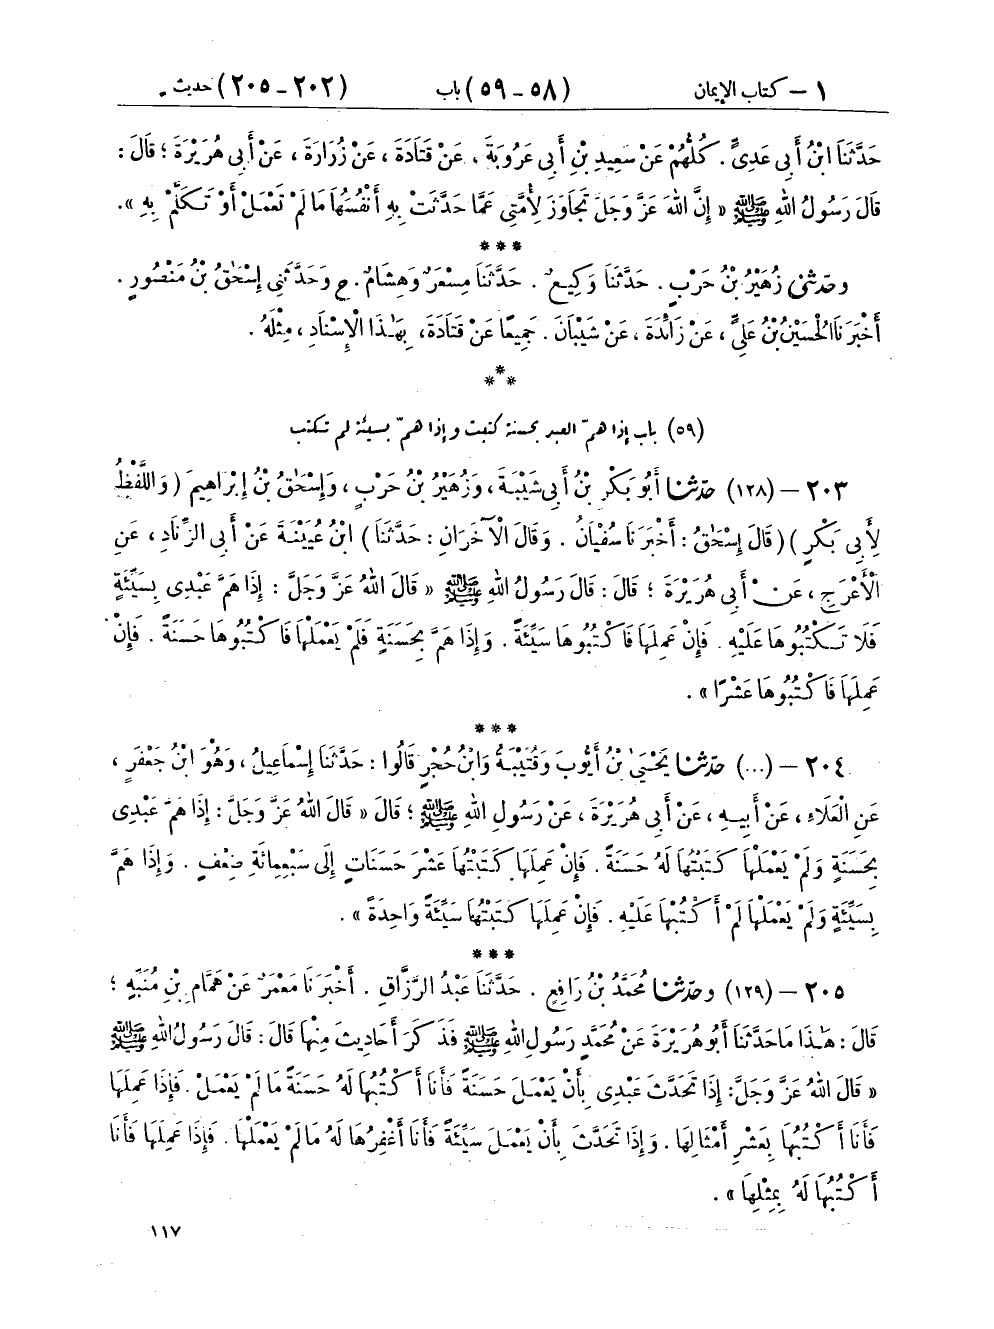 ١ – كتاب الإيمان (٥٨ – ٥٩) باب (٢٠٢ – ٢٠٥) حديث
حَدَّثَنَا ابْنُ أَبِي عَدِيٍّ . كُلُّهُمْ عَنْ سَعِيدِ بْنِ أَبِي عَرُوبَةَ ، عَنْ قَتَادَةَ ، عَنْ زُرَارَةَ ، عَنْ أَبِي هُرَيْرَةَ ؛ قَالَ :
قَالَ رَسُولُ اللهِ ﷺ « إِنَّ اللهَ عَزَّ وَجَلَّ تَجَاوَزَ لِأُمَّتِي عَمَّا حَدَّثَتْ بِهِ أَنْفُسُهَا مَا لَمْ تَعْمَلْ أَوْ تَكَلَّمْ بِهِ » .
***
وحدّثنى زُهَيْرُ بْنُ حَرْبٍ . حَدَّثَنَا وَكِيعٌ . حَدَّثَنَا مِسْعَرٌ وَهِشَامٌ . ح وَحَدَّثَنِي إِسْحَٰقُ بْنُ مَنْصُورٍ .
أَخْبَرَنَا الْحُسَيْنُ بْنُ عَلِيٍّ ، عَنْ زَائِدَةَ ، عَنْ شَيْبَانَ . جَمِيعًا عَنْ قَتَادَةَ ، بِهَٰذَا الْإِسْنَادِ ، مِثْلَهُ .
***
(٥٩) باب إذا هم العبد بحسنة كتبت وإذا همّ بسيئة لم تكتب
٢٠٣ – (١٢٨) حدّثنا أَبُو بَكْرِ بْنُ أَبِي شَيْبَةَ ، وَزُهَيْرُ بْنُ حَرْبٍ ، وَإِسْحَٰقُ بْنُ إِبْرَاهِيمَ ( وَاللَّفْظُ
لِأَبِي بَكْرٍ ) ( قَالَ إِسْحَٰقُ : أَخْبَرَنَا سُفْيَانُ . وَقَالَ الْآخَرَانِ : حَدَّثَنَا ) ابْنُ عُيَيْنَةَ عَنْ أَبِي الزِّنَادِ ، عَنِ
الْأَعْرَجِ ، عَنْ أَبِي هُرَيْرَةَ ؛ قَالَ : قَالَ رَسُولُ اللهِ ﷺ « قَالَ اللهُ عَزَّ وَجَلَّ : إِذَا هَمَّ عَبْدِي بِسَيِّئَةٍ
فَلَا تَكْتُبُوهَا عَلَيْهِ . فَإِنْ عَمِلَهَا فَاكْتُبُوهَا سَيِّئَةً . وَإِذَا هَمَّ بِحَسَنَةٍ فَلَمْ يَعْمَلْهَا فَاكْتُبُوهَا حَسَنَةً . فَإِنْ
عَمِلَهَا فَاكْتُبُوهَا عَشْرًا » .
***
٢٠٤ – (...) حدّثنا يَحْيَىٰ بْنُ أَيُّوبَ وَقُتَيْبَةُ وَابْنُ حُجْرٍ قَالُوا : حَدَّثَنَا إِسْمَاعِيلُ ، وَهُوَ ابْنُ جَعْفَرٍ ،
عَنِ الْعَلَاءِ ، عَنْ أَبِيهِ ، عَنْ أَبِي هُرَيْرَةَ ، عَنْ رَسُولِ اللهِ ﷺ ؛ قَالَ « قَالَ اللهُ عَزَّ وَجَلَّ : إِذَا هَمَّ عَبْدِي
بِحَسَنَةٍ وَلَمْ يَعْمَلْهَا كَتَبْتُهَا لَهُ حَسَنَةً . فَإِنْ عَمِلَهَا كَتَبْتُهَا عَشْرَ حَسَنَاتٍ إِلَى سَبْعِمِائَةِ ضِعْفٍ . وَإِذَا هَمَّ
بِسَيِّئَةٍ وَلَمْ يَعْمَلْهَا لَمْ أَكْتُبْهَا عَلَيْهِ . فَإِنْ عَمِلَهَا كَتَبْتُهَا سَيِّئَةً وَاحِدَةً » .
***
٢٠٥ – (١٢٩) وحدّثنا مُحَمَّدُ بْنُ رَافِعٍ . حَدَّثَنَا عَبْدُ الرَّزَّاقِ . أَخْبَرَنَا مَعْمَرٌ عَنْ هَمَّامِ بْنِ مُنَبِّهٍ ؛
قَالَ : هَٰذَا مَا حَدَّثَنَا أَبُو هُرَيْرَةَ عَنْ مُحَمَّدٍ رَسُولِ اللهِ ﷺ فَذَكَرَ أَحَادِيثَ مِنْهَا قَالَ : قَالَ رَسُولُ اللهِ ﷺ
« قَالَ اللهُ عَزَّ وَجَلَّ : إِذَا تَحَدَّثَ عَبْدِي بِأَنْ يَعْمَلَ حَسَنَةً فَأَنَا أَكْتُبُهَا لَهُ حَسَنَةً مَا لَمْ يَعْمَلْ . فَإِذَا عَمِلَهَا
فَأَنَا أَكْتُبُهَا بِعَشْرِ أَمْثَالِهَا . وَإِذَا تَحَدَّثَ بِأَنْ يَعْمَلَ سَيِّئَةً فَأَنَا أَغْفِرُهَا لَهُ مَا لَمْ يَعْمَلْهَا . فَإِذَا عَمِلَهَا فَأَنَا
أَكْتُبُهَا لَهُ بِمِثْلِهَا » .
١١٧